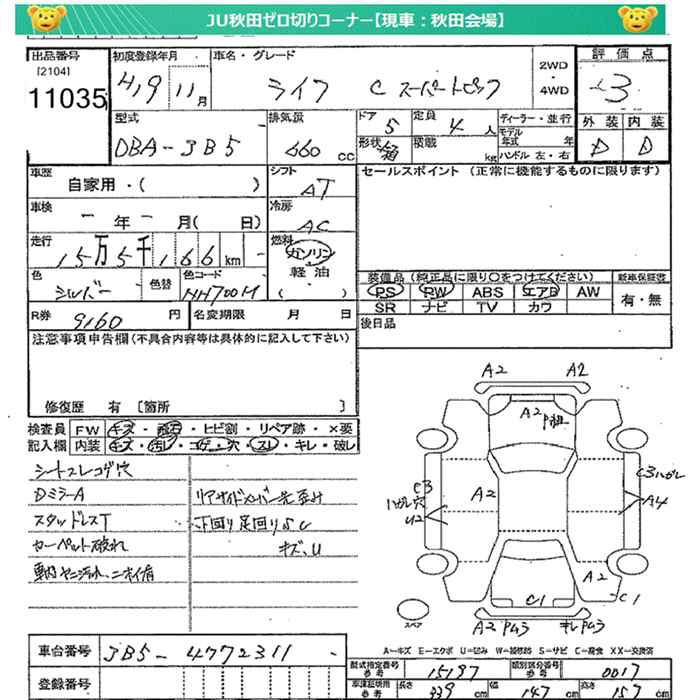 JU秋田ゼロ切りコーナー【現車：秋田会場】
出品番号 [2104] 11035
初度登録年月 H19 11月
車名・グレード ライフ C スーパートピック
2WD・4WD
評価点 3
外装 D 内装 D
型式 DBA-JB5
排気量 660 cc
ドア 5 形状 箱
定員 4 人 積載 kg
ディーラー・並行 モデル年式 年 ハンドル 左・右
車歴 自家用・( )
シフト AT
セールスポイント (正常に機能するものに限ります)
車検 - 年 - 月( 日)
冷房 AC
走行 15万5千166 km
燃料 ガソリン 軽油 ( )
色 シルバー 色替
色コード NH700M
装備品 (純正品に限り○をつけてください)
新車保証書 有・無
PS PW ABS エアB AW
SR ナビ TV カワ
R券 9160 円
名変期限 月 日
後日品
注意事項申告欄 (不具合内容等は具体的に記入して下さい)
修復歴 有 [箇所 ]
検査員 FW キズ・飛石・ヒビ割・リペア跡・×要
記入欄 内装 キズ・汚レ・コゲ・穴・スレ・キレ・破レ
シートスレコゲ穴
DミラーA
リアサイドメンバー先歪み
スタッドレスT
下回り足回りS C
カーペット破れ
キズ、U
車内ヤニ汚れ、ニオイ有
A2 A2
A2 P担
C3 ハガレ穴 U2
A2
C3ハガレ
A4
A2
C1 C1
A2 PM3 キレPM3
スペア
A=キズ E=エクボ U=凹み W=補修跡 S=サビ C=腐食 XX=交換済
車台番号 JB5-4772311
登録番号
型式指定番号 参考 15197
類別区分番号 参考 0017
車庫証明用 参考 長さ 339 cm 幅 147 cm 高さ 157 cm